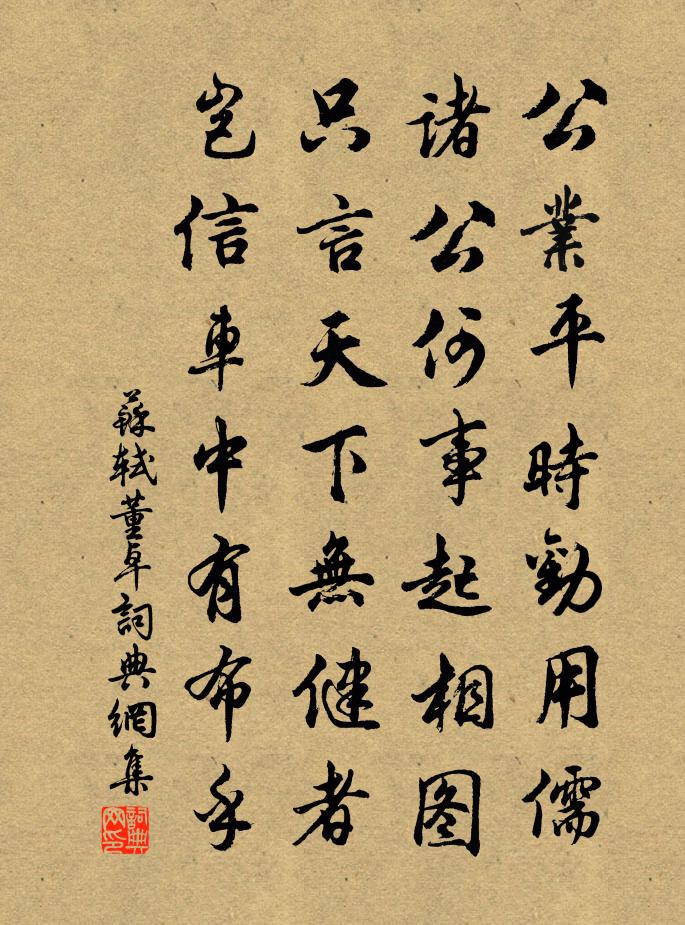 公業平時勸用儒
諸公何事起相图
只言天下無健者
豈信車中有布乎
蘇軾董卓詞典網集
詞典网印